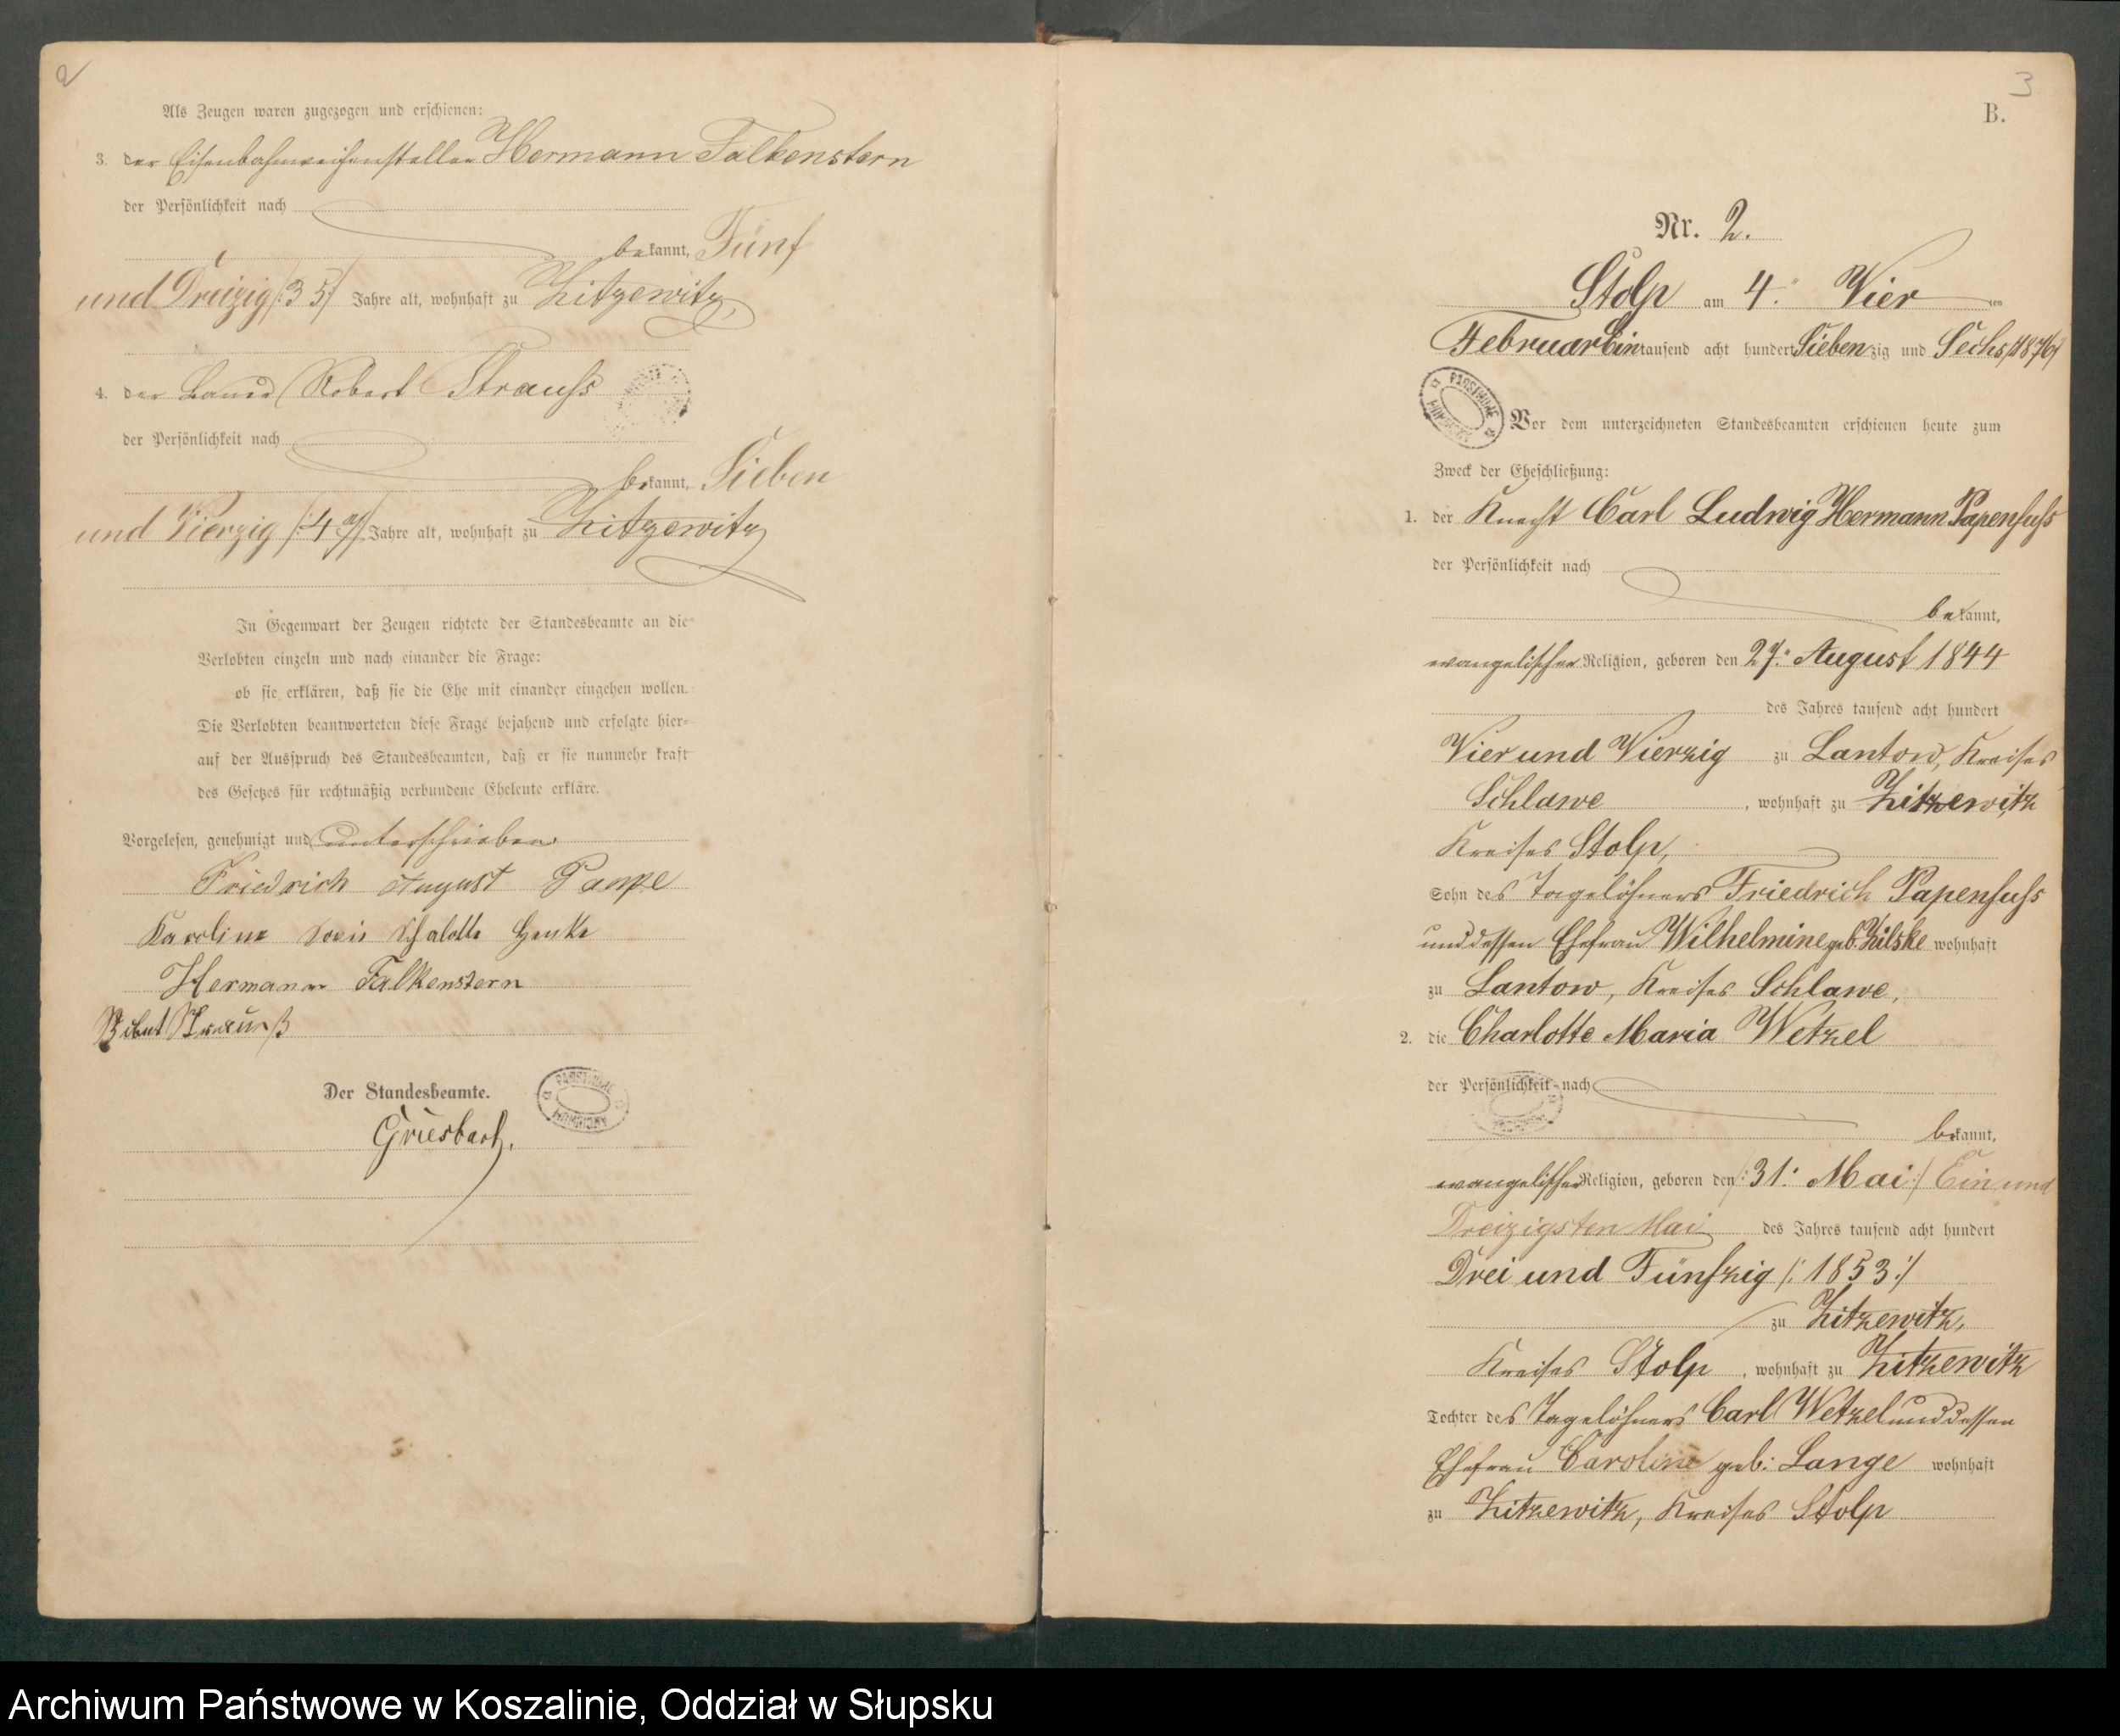 2
Als Zeugen waren zugezogen und erschienen:
3. der Eisenbahnweichensteller Hermann Falkenstern
der Persönlichkeit nach
bekannt, Fünf
und Dreizig /:35:/ Jahre alt, wohnhaft zu Zitzewitz
4. der Bauer Robert Strauss
der Persönlichkeit nach
bekannt, Sieben
und Vierzig /:47:/ Jahre alt, wohnhaft zu Zitzewitz
In Gegenwart der Zeugen richtete der Standesbeamte an die
Verlobten einzeln und nach einander die Frage:
ob sie erklären, daß sie die Ehe mit einander eingehen wollen.
Die Verlobten beantworteten diese Frage bejahend und erfolgte hier-
auf der Ausspruch des Standesbeamten, daß er sie nunmehr kraft
des Gesetzes für rechtmäßig verbundene Eheleute erkläre.
Vorgelesen, genehmigt und unterschrieben
Friedrich August Pampe
Karoline Henke
Hermann Falkenstern
Robert Strauß
Der Standesbeamte.
PAŃSTWOWE ARCHIWUM
Griesbach.
3
B.
Nr. 2.
Stolp am 4. Vier ten
Februar Eintausend acht hundert Siebenzig und Sechs /:1876:/
PAŃSTWOWE ARCHIWUM
Vor dem unterzeichneten Standesbeamten erschienen heute zum
Zweck der Eheschließung:
1. der Knecht Carl Ludwig Hermann Papenfuss
der Persönlichkeit nach
bekannt,
evangelischer Religion, geboren den 27. August 1844
des Jahres tausend acht hundert
Vier und Vierzig zu Lantow, Kreises
Schlawe, wohnhaft zu Zitzewitz
Kreises Stolp,
Sohn des Tagelöhners Friedrich Papenfuss
und dessen Ehefrau Wilhelmine geb. Zilske wohnhaft
zu Lantow, Kreises Schlawe,
2. die Charlotte Maria Wetzel
der Persönlichkeit nach
bekannt,
evangelischer Religion, geboren den /:31. Mai:/ Ein und
Dreizigsten Mai des Jahres tausend acht hundert
Drei und Fünfzig /:1853:/
zu Zitzewitz,
Kreises Stolp, wohnhaft zu Zitzewitz
Tochter des Tagelöhners Carl Wetzel und dessen
Ehefrau Caroline geb: Lange wohnhaft
zu Zitzewitz, Kreises Stolp
Archiwum Państwowe w Koszalinie, Oddział w Słupsku